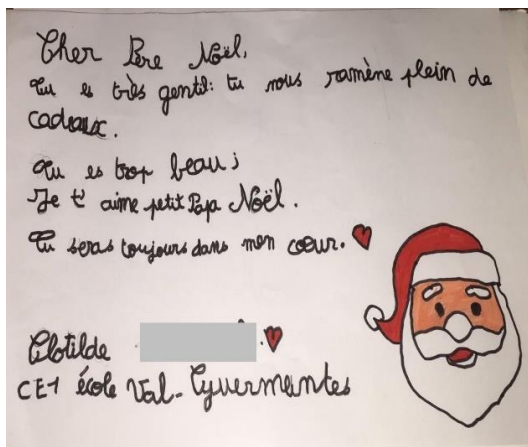 Cher Père Noël,
Tu es très gentil: tu nous ramène plein de
cadeaux.
Tu es trop beau;
Je t'aime petit Papa Noël.
Tu seras toujours dans mon cœur.
Clotilde
CE1 école Val-Cyvermantes